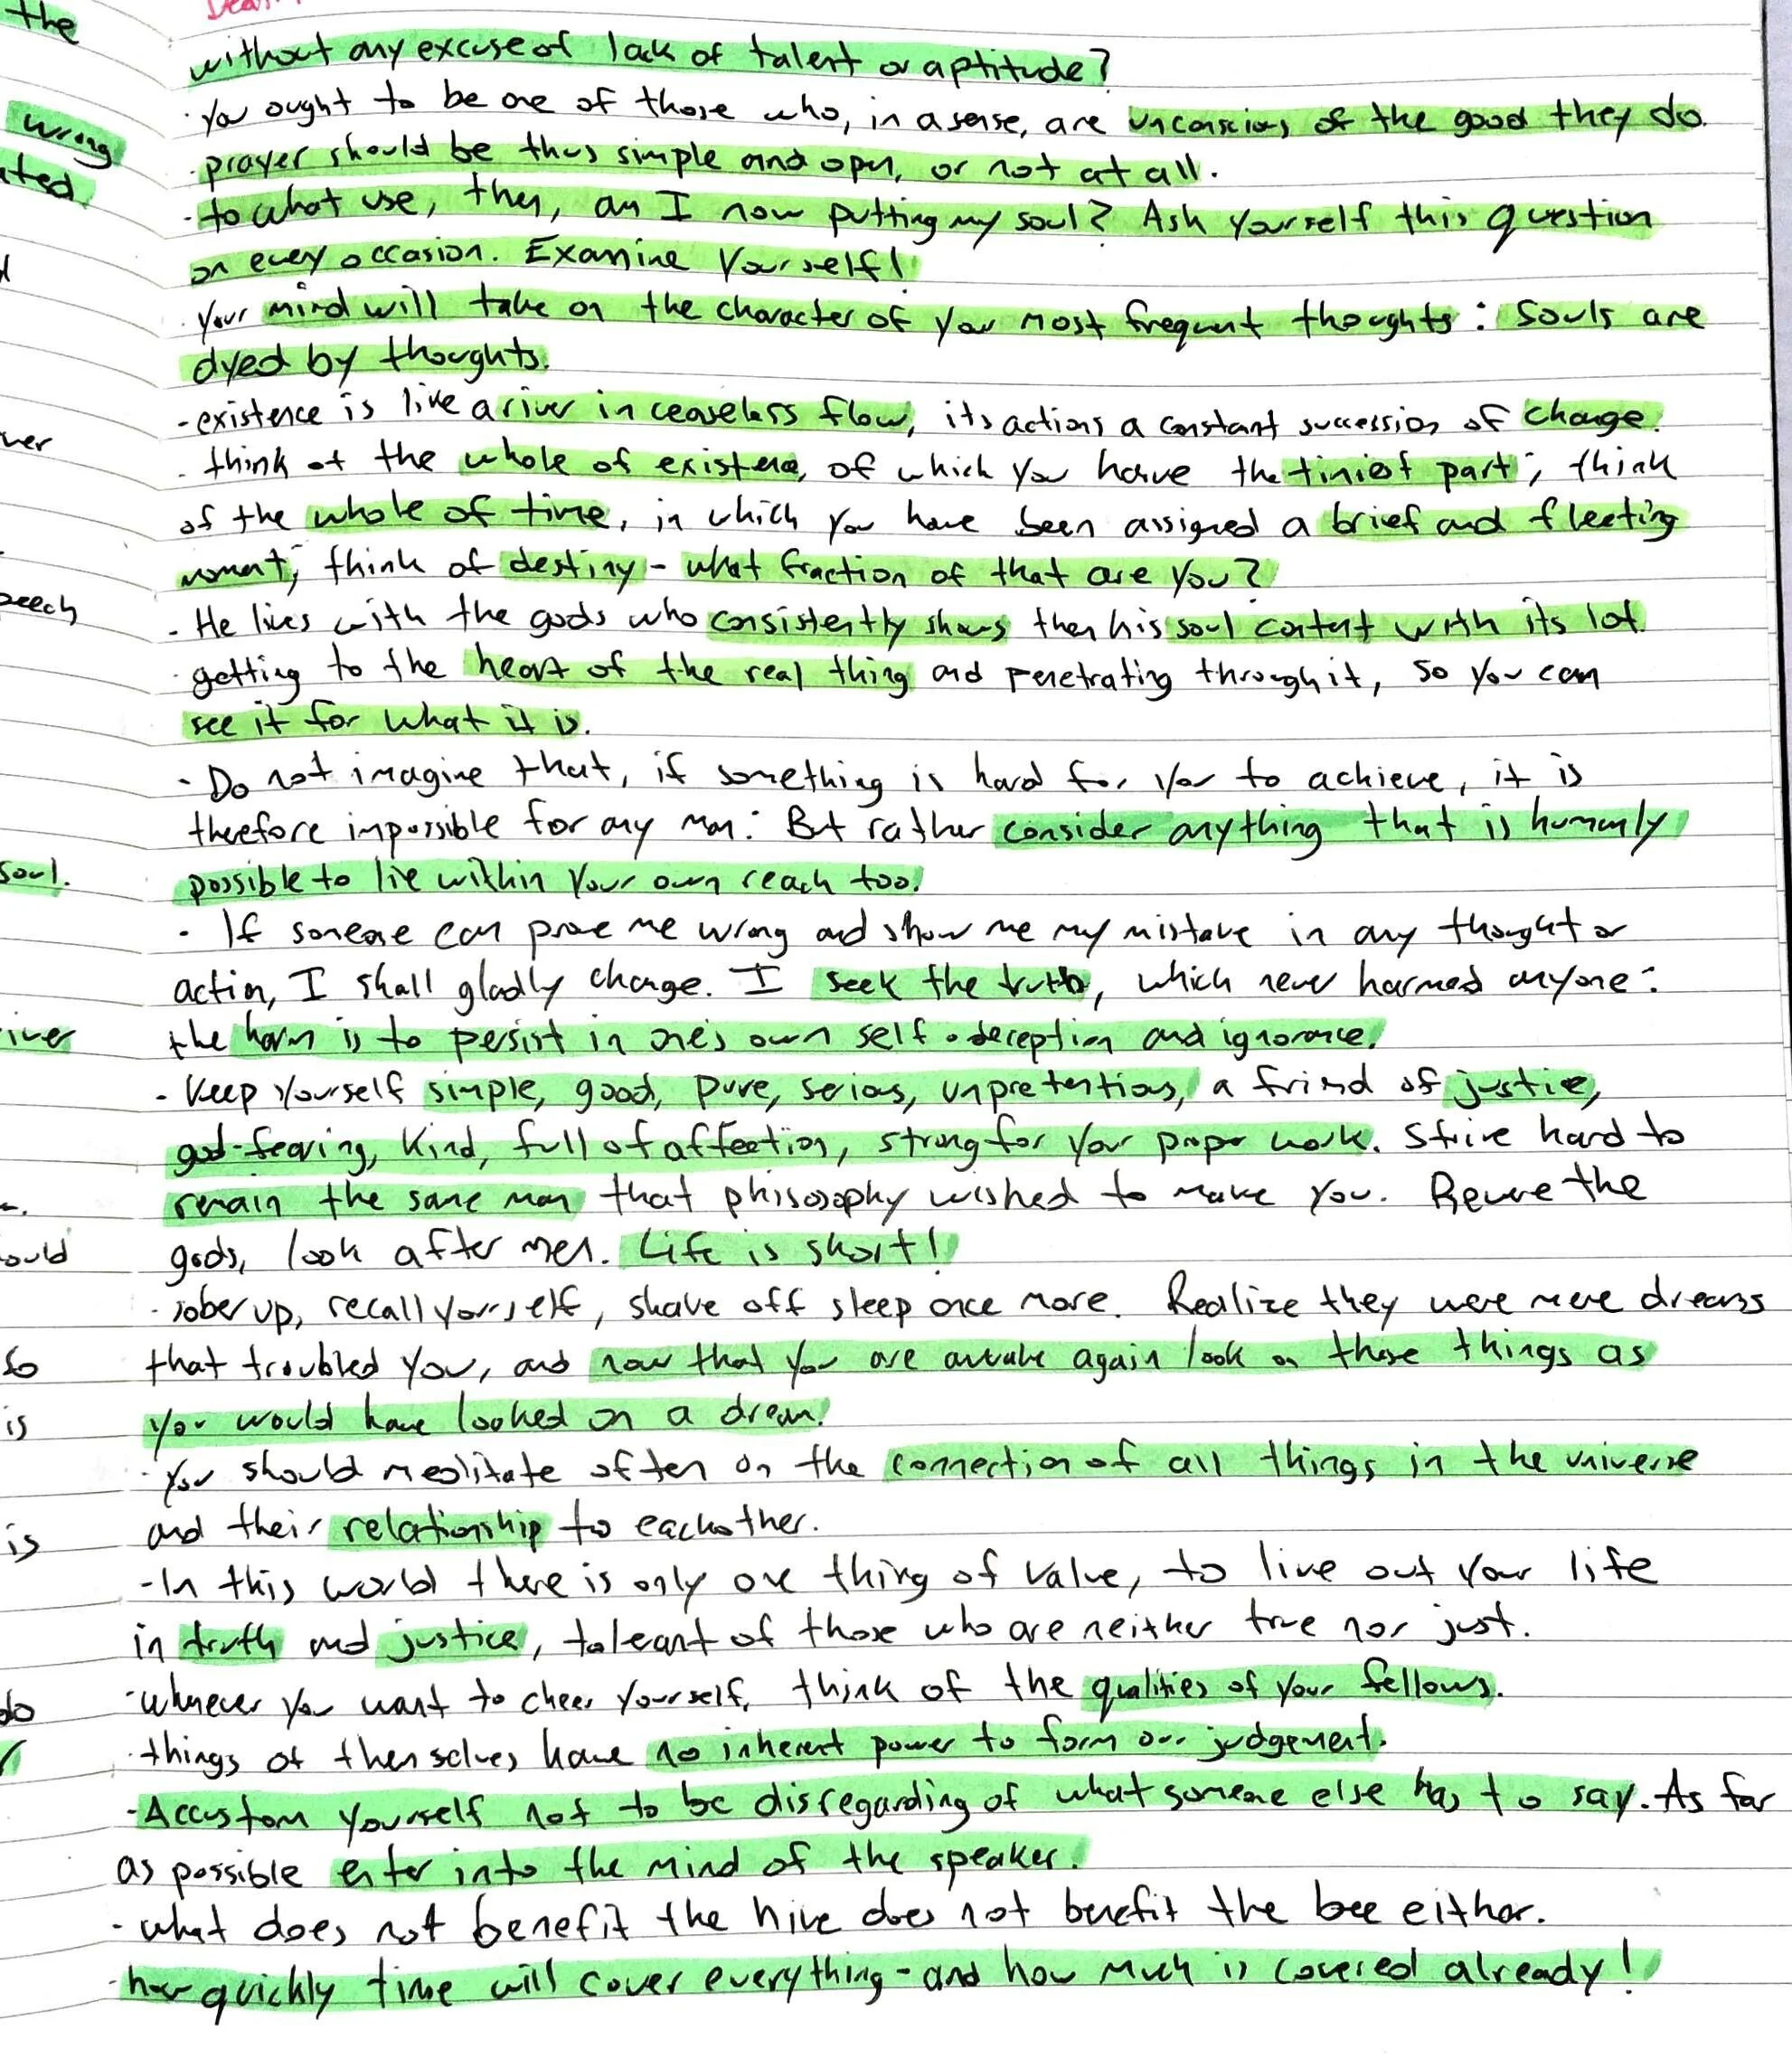 the
without any excuse of lack of talent or aptitude?
· You ought to be one of those who, in a sense, are unconscious of the good they do.
wrong
· prayer should be thus simple and open, or not at all.
ated
- to what use, then, am I now putting my soul? Ask yourself this question
on every occasion. Examine Yourself!
· Your mind will take on the character of your most frequent thoughts: Souls are
dyed by thoughts.
- existence is like a river in ceaseless flow, its actions a constant succession of change.
ver
- think of the whole of existence, of which you have the tiniest part; think
of the whole of time, in which you have been assigned a brief and fleeting
moment; think of destiny - what fraction of that are you?
peech
- He lives with the gods who consistently shows them his soul content with its lot.
· getting to the heart of the real thing and penetrating through it, so you can
see it for what it is.
· Do not imagine that, if something is hard for you to achieve, it is
therefore impossible for any man: But rather consider anything that is humanly
soul.
possible to lie within your own reach too.
· If someone can prove me wrong and show me my mistake in any thought or
action, I shall gladly change. I seek the truth, which never harmed anyone:
iver
the harm is to persist in one's own self-deception and ignorance.
- Keep Yourself simple, good, pure, serious, unpretentious, a friend of justice,
god-fearing, kind, full of affection, strong for your proper work. Strive hard to
remain the same man that philosophy wished to make you. Revere the
ould
gods, look after men. Life is short!
· sober up, recall yourself, shake off sleep once more. Realize they were mere dreams
so
that troubled you, and now that you are awake again look on those things as
is
you would have looked on a dream.
· You should meditate often on the connection of all things in the universe
is
and their relationship to eachother.
- In this world there is only one thing of value, to live out your life
in truth and justice, toleant of those who are neither true nor just.
do
· whenever you want to cheer yourself, think of the qualities of your fellows.
· things of themselves have no inherent power to form our judgement.
- Accustom yourself not to be disregarding of what someone else has to say. As far
as possible enter into the mind of the speaker.
- what does not benefit the hive does not benefit the bee either.
- how quickly time will cover everything - and how much is covered already!